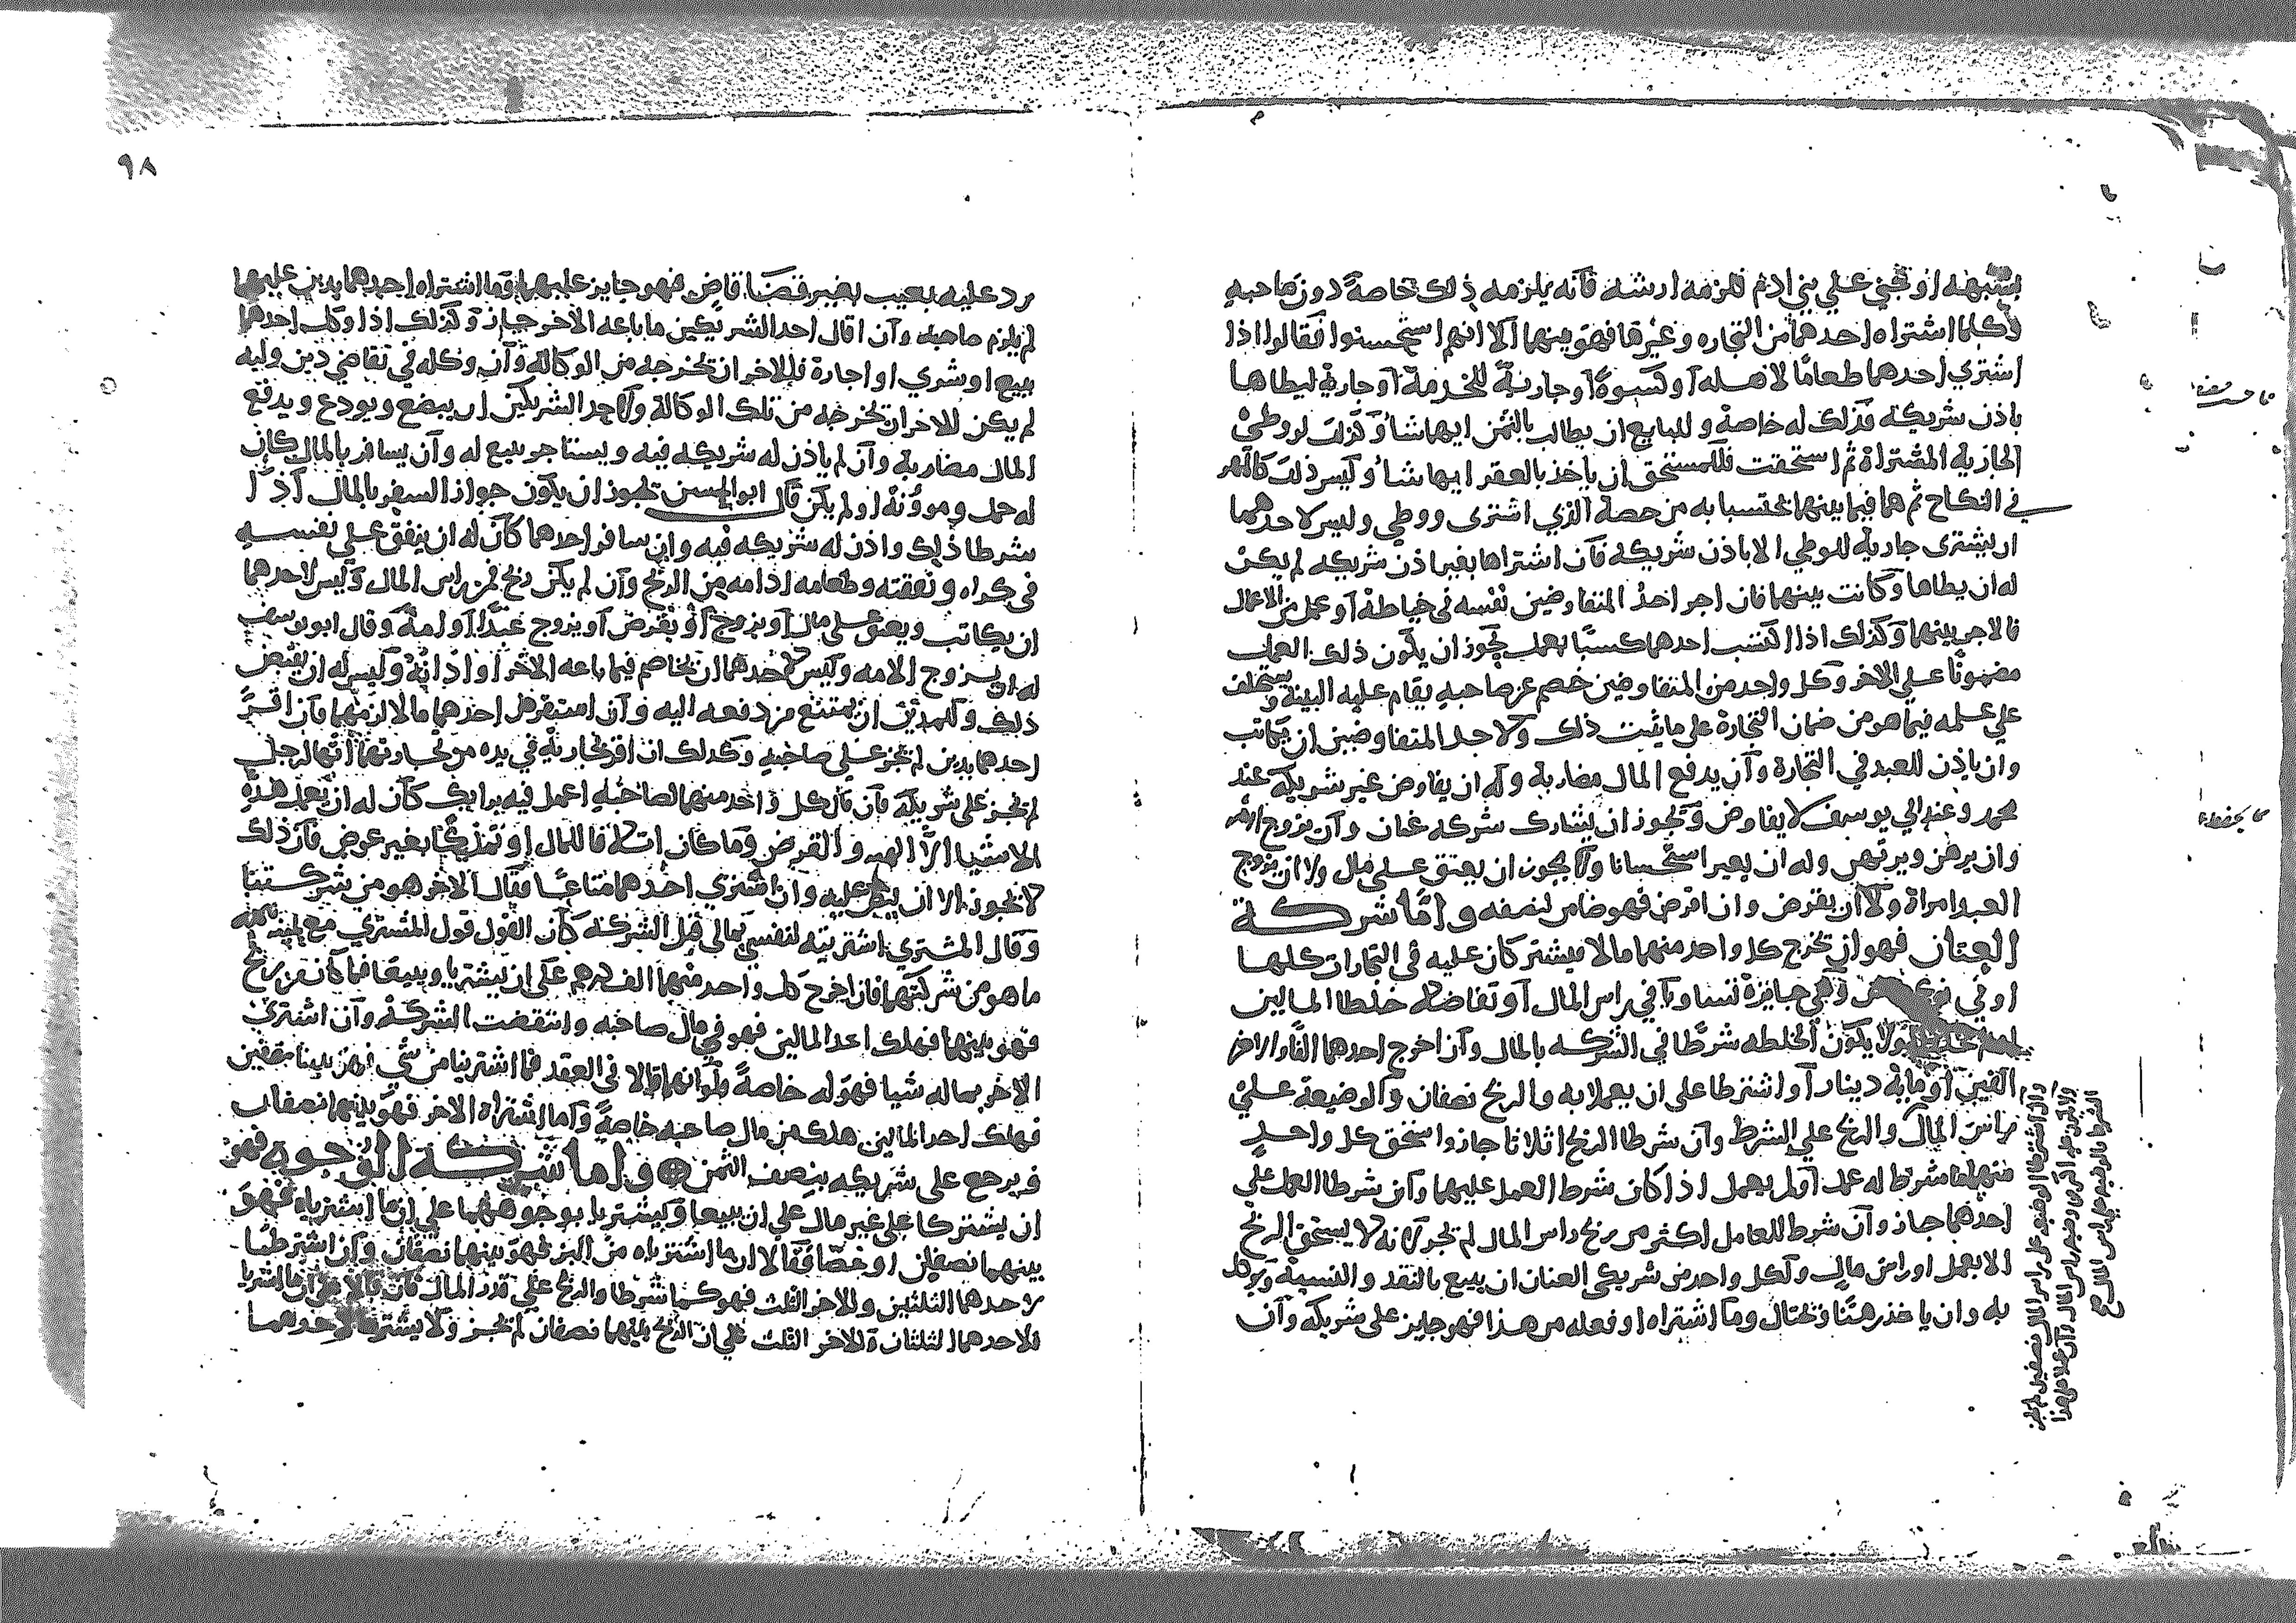 بشبهة او تجني علي بني ادم فلزمه ارشه فانه يلزمه ذلك خاصة دون صاحبه
وكلما اشتراه احدهما من التجاره وغيرها فهو بينهما الا انهم استحسنوا فقالوا اذا
اشتري احدهما طعامًا لاهله او كسوة او جارية للخدمة او جارية ليطاها
باذن شريكه فذلك له خاصة وللبايع ان يطالب بالثمن ايهما شا وكذلك لو وطئ
الجارية المشتراة ثم استحقت فللمستحق ان ياخذ بالعقر ايهما شا وليس ذلك كالمهر
في النكاح ثم هما فيما بينهما يحتسبا به من حصة الذي اشترى ووطي وليس لاحدهما
ان يشترى جارية للوطي الا باذن شريكه فان اشتراها بغير اذن شريكه لم يكن
له ان يطاها وكانت بينهما فان اجر احد المتفاوضين نفسه في خياطة او عمل من الاعمال
فالاجر بينهما وكذلك اذا اكتسب احدهما كسبًا بعمل يجوز ان يكون ذلك العمل
مضمونًا علي الاخر وكل واحد من المتفاوضين خصم عن صاحبه يقام عليه البينة ويستحلف
علي علمه فيما هو من ضمان التجارة على ما بينت ذلك ولاحد المتفاوضين ان يكاتب
وان ياذن للعبد في التجارة وان يدفع المال مضاربة وله ان يفاوض غير شريكه عند
محمد وعند ابي يوسف لا يفاوض ويجوز ان يشارك شركه عنان وان يزوج الامه
وان يرهن ويرتهن وله ان يعير استحسانا ولا يجوز ان يعتق على مال ولا ان يزوج
العبد امراة ولا ان يقرض وان اقرض فهو ضامن لنصفه واما شركة
العنان فهو ان تخرج كل واحد منهما مالا فيشتركان عليه في التجارات كلها
او في نوع وهي جايزة تساويا في راس المال او تفاضلا خلطا المالين
ولا يكون الخلطه شرطًا في الشركه بالمال وان اخرج احدهما الفًا والاخر
الفين او مايه دينار او اشترطا على ان يعملا به والربح نصفان والوضيعة علي
راس المال والربح علي الشرط وان شرطا الربح اثلاثا جاز واستحق كل واحد
منهما ما شرط له عمل او لم يعمل اذا كان شرط العمل عليهما وان شرطا العمل على
احدهما جاز وان شرط للعامل اكثر من ربح راس المال لم تجز لانه لا يستحق الربح
الا بعمل او راس مال ولكل واحد من شريكي العنان ان يبيع بالنقد والنسية ويوكل
به وان ياخذ رهنًا وتحتال وما اشتراه او فعله من هذا فهو جايز على شريكه وان
وان اشترطا الوضيعه على راس المال نصفين لم يجز
٩٨
رد عليه بعيب بغير قضا قاض فهو جايز عليهما وما اشتراه احدهما بدين عليهما
لم يلزم صاحبه وان اقال احد الشريكين ما باعه الاخر جاز وكذلك اذا وكل احدهما
ببيع او شري او اجارة فللاخر ان تخرجه من الوكالة وان وكله في تقاضي دين وليه
لم يكن للاخر ان تخرجه من تلك الوكالة ولاحد الشريكين ان يبضع ويودع ويدفع
المال مضاربة وان لم ياذن له شريكه فيه ويستاجر يبيع له وان يسافر بالمال كان
له حمل ومؤونة او لم يكن قال ابو الحسن يجوز ان يكون جواز السفر بالمال اذا
شرطا ذلك واذن له شريكه فيه وان سافر احدهما كان له ان ينفق علي نفسه
في كراه ونفقته وطعامه ادامه من الربح وان لم يكن ربح فمن راس المال وليس لاحدهما
ان يكاتب ويعتق علي مال او يزوج او يقرض او يزوج عبدًا او امة وقال ابو يوسف
له ان يزوج الامه وليس لاحدهما ان يخاصم فيما باعه الاخر او ادانه وليس له ان يقبض
ذلك وللمدين ان يمتنع من دفعه اليه وان استقرض احدهما مالا لزمهما فان اقر
احدهما بدين لم تجز علي صاحبه وكذلك ان اقر بجارية في يده من تجارتهما انها لرجل
لم تجز على شريكه فان قال كل واحد منهما لصاحبه اعمل فيه برايك كان له ان يعمل هذه
الاشيا الا الهبه والقرض وما كان اتلافا للمال او تمليكا بغير عوض فان ذلك
لا يجوز الا ان ينص عليه وان اشتري احدهما متاعًا فقال الاخر هو من شركتنا
وقال المشتري اشتريته لنفسي بمالي قبل الشركه كان القول قول المشتري مع يمينه
ما هو من شركتهما فان اخرج كل واحد منهما الف درهم على ان يشتريا ويبيعا فما كان من ربح
فهو بينهما فهلك احد المالين فهو في مال صاحبه وانتقضت الشركة وان اشترى
الاخر بماله شيا فهو له خاصة ولو انهما قالا في العقد فما اشترينا من شي فهو بيننا نصفين
فهلك احد المالين هلك من مال صاحبه خاصة وما اشتراه الاخر فهو بينهما نصفان
ويرجع على شريكه بنصف الثمن واما شركة الوجوه فهو
ان يشتركا على غير مال علي ان يبيعا ويشتريا بوجوههما علي ان ما اشترياه فهو
بينهما نصفين او خصا فقالا ان ما اشترياه من البز فهو بينهما نصفان وان اشترطا
لاحدهما الثلثين وللاخر الثلث فهو كما شرطا والربح علي قدر المال فان قالا علي ان ما اشتريا
فلاحدهما الثلثان وللاخر الثلث علي ان الربح بينهما نصفان لم تجز ولا يشترط لاحدهما